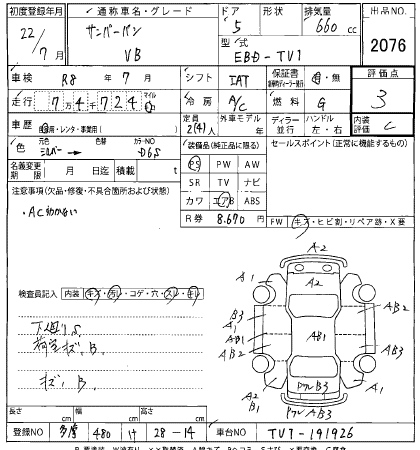 初度登録年月 通称車名・グレード ドア 形状 排気量 出品NO.
22/7月 サンバーバン 5 660 cc
VB 型式 EBD-TV1 2076
車検 R8年7月 シフト IAT 保証書 有・無 評価点
走行 7万4千724 マイル km 冷房 A/C 燃料 G 3
車歴 自家用・レンタ・事業用( ) 定員 2(4)人 外車モデル 年 ディーラー 並行 ハンドル 左・右 内装評価 C
色 シルバー → 色替 カラーNO D6S 装備品(純正品に限る) セールスポイント(正常に機能するもの)
名義変更期限 月 日迄 積載 t PS PW AW
注意事項(欠品・修復・不具合箇所および状態) SR TV ナビ
・AC効かない カワ エアB ABS
R券 8.670円 FW キズ・ヒビ割・リペア跡・X要
A2
A1 A2 A1
検査員記入 内装 キズ・汚レ・コゲ・穴・スレ・キレ
下回りS B3 A2
荷室キズ、B. A1 AB1 AB1 AB2
AB2 AB3
キズ、B. PクルB3
A2 B1 A1
PクルAB3
長さ cm 幅 cm 高さ cm
登録NO 多摩 480 け 28-14 車台NO TV1-191926